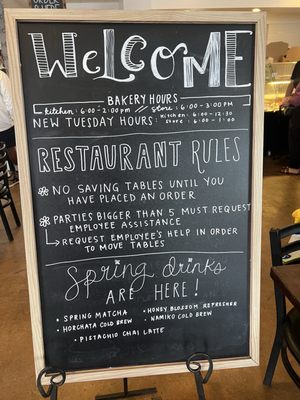 ORDER
HERE
WELCOME
BAKERY HOURS
kitchen: 6:00 - 2:00 pm // store: 6:00 - 3:00 PM
NEW TUESDAY HOURS: Kitchen: 6:00 - 12:30
Store: 6:00 - 1:00
RESTAURANT RULES
NO SAVING TABLES UNTIL YOU
HAVE PLACED AN ORDER
PARTIES BIGGER THAN 5 MUST REQUEST
EMPLOYEE ASSISTANCE
REQUEST EMPLOYEE'S HELP IN ORDER
TO MOVE TABLES
Spring drinks
ARE HERE!
• SPRING MATCHA • HONEY BLOSSOM REFRESHER
• HORCHATA COLD BREW • NAMIKO COLD BREW
• PISTACHIO CHAI LATTE